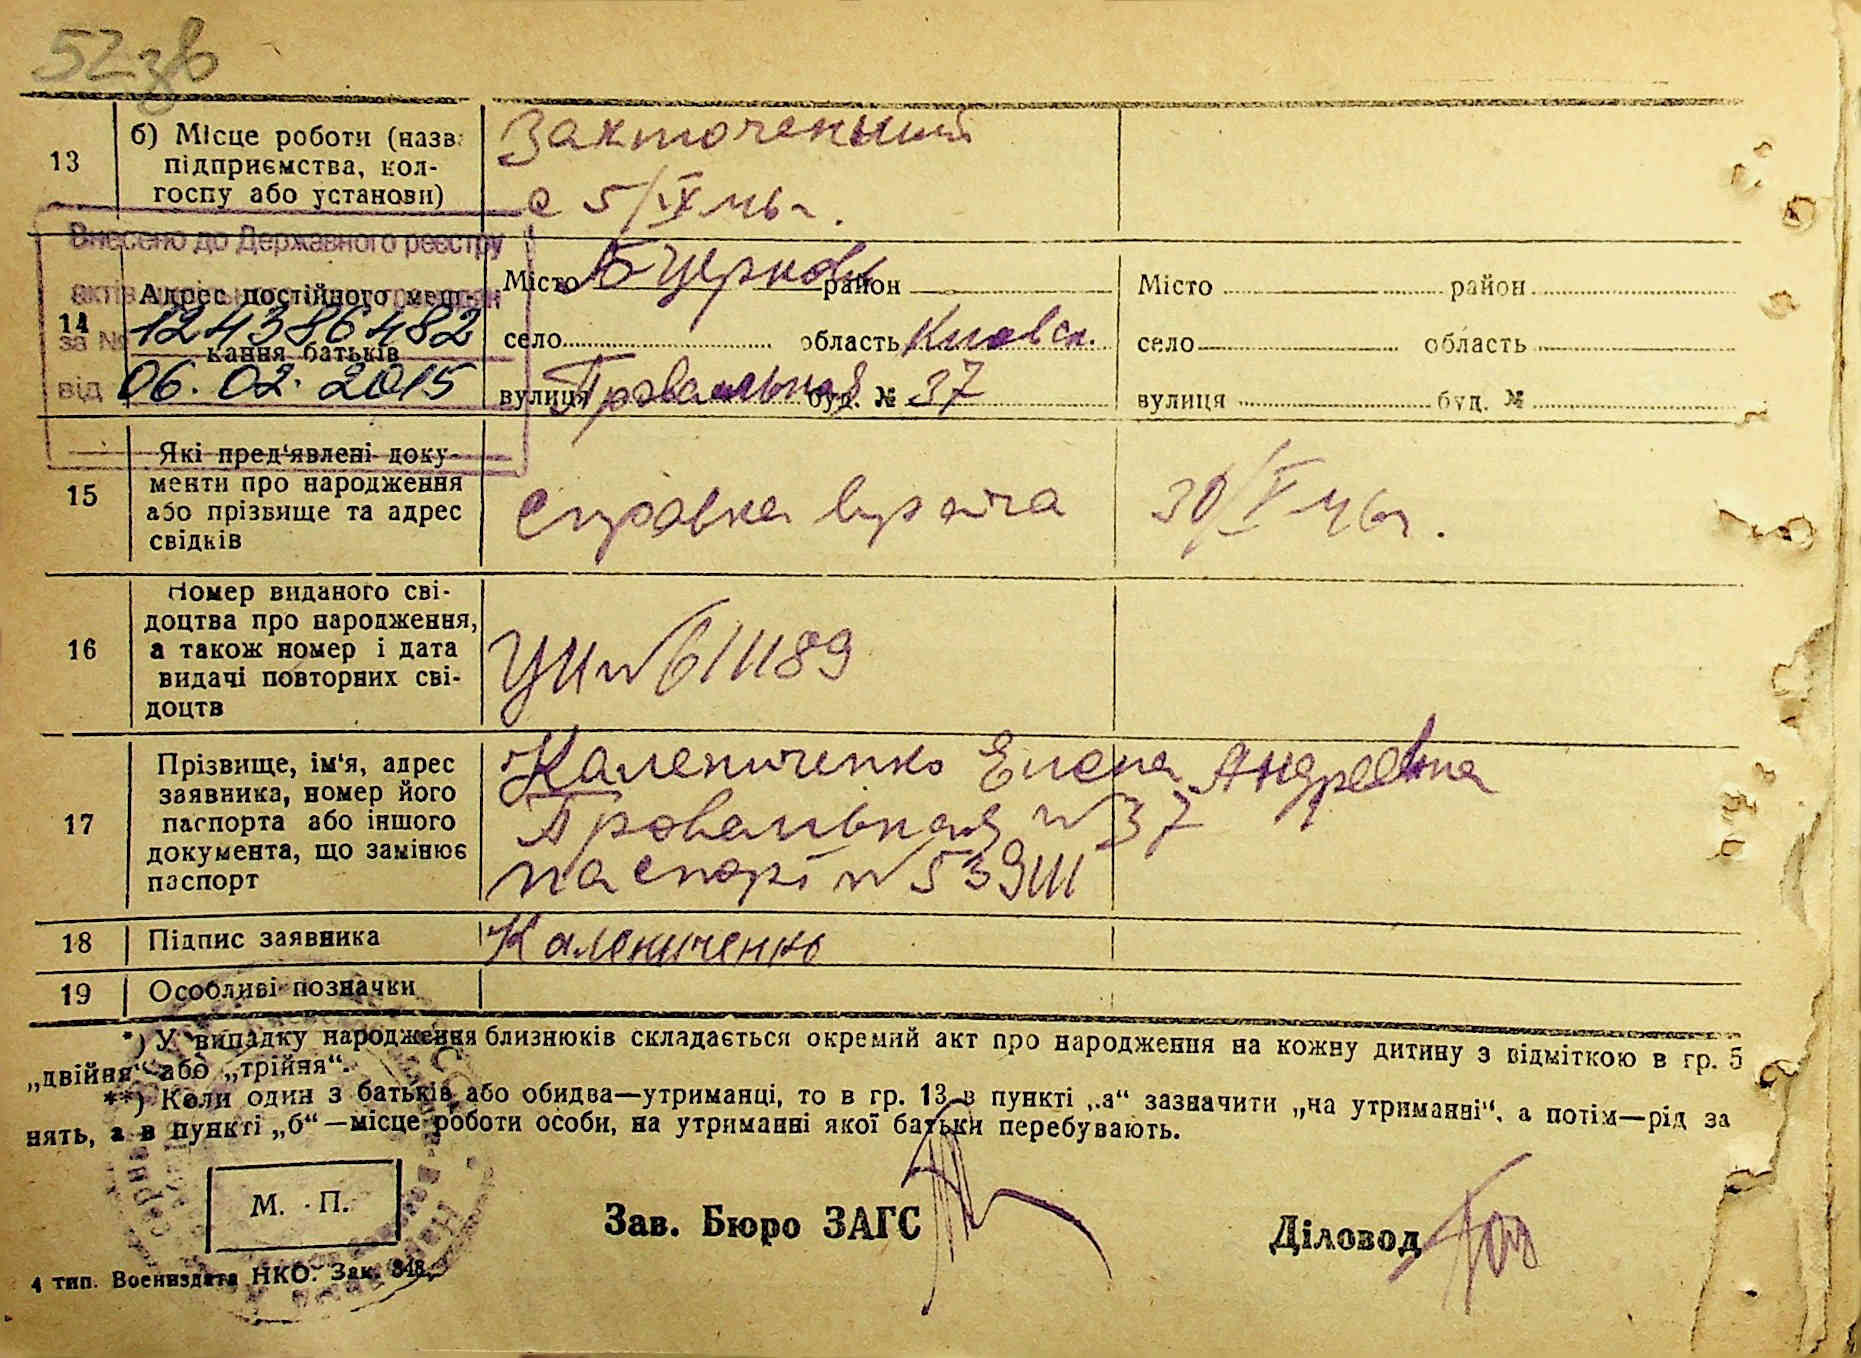 52зв
13
б) Місце роботи (назва
підприємства, кол-
госпу або установи)
Заключенный
с 5/IX 46 г.
Внесено до Державного реєстру
актів цивільного стану громадян
за № 124386482
від 06.02.2015
14
Адрес постійного меш-
кання батьків
Місто Б Церковь район
село область Киевск.
вулиця Провальная буд. № 37
Місто район
село область
вулиця буд. №
15
Які пред'явлені доку-
менти про народження
або прізвище та адрес
свідків
справка врача 30/V 46 г.
16
Номер виданого сві-
доцтва про народження,
а також номер і дата
видачі повторних сві-
доцтв
УЦ № 611189
17
Прізвище, ім'я, адрес
заявника, номер його
паспорта або іншого
документа, що замінює
паспорт
Калениченко Елена Андреевна
Провальная № 37
паспорт № 539111
18
Підпис заявника
Калениченко
19
Особливі позначки
*) У випадку народження близнюків складається окремий акт про народження на кожну дитину з відміткою в гр. 5
„двійня“ або „трійня“.
**) Коли один з батьків або обидва—утриманці, то в гр. 13 в пункті „а“ зазначити „на утриманні“, а потім—рід за
нять, а в пункті „б“—місце роботи особи, на утриманні якої батьки перебувають.
М. П.
Зав. Бюро ЗАГС
Діловод
4 тип. Воениздата НКО. Зак. 348.